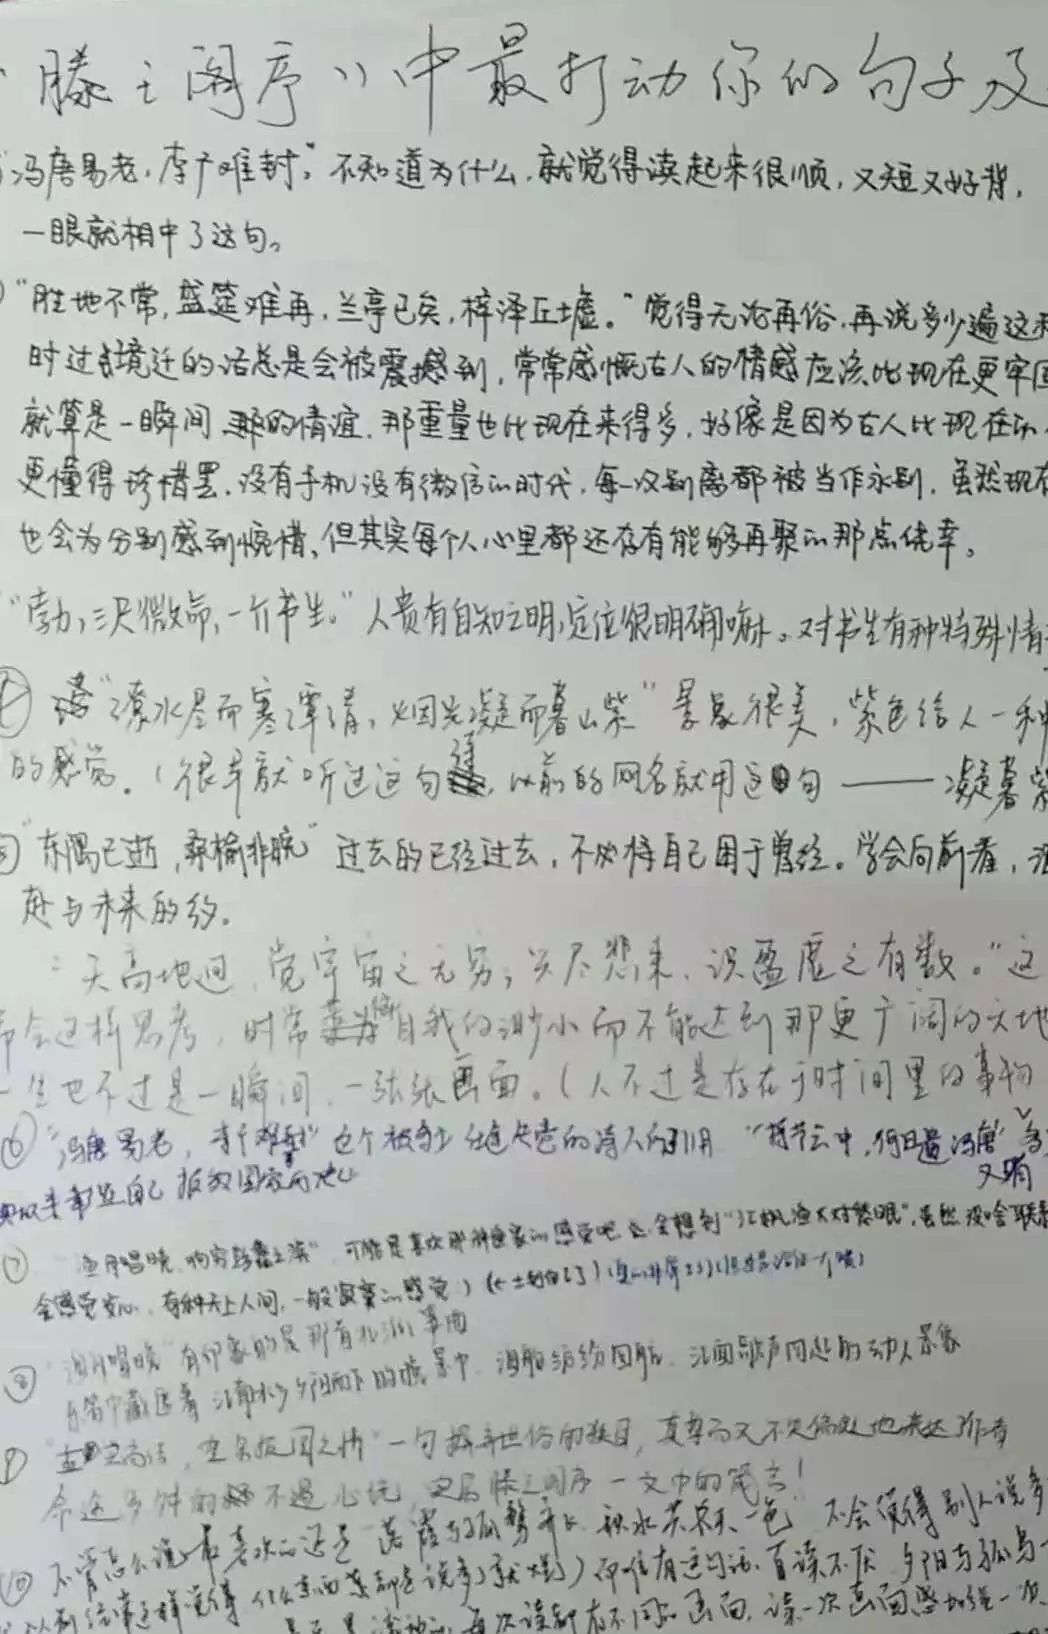 滕王阁序》中最打动你的句子及
"冯唐易老,李广难封。"不知道为什么,就觉得读起来很顺,又短又好背,
一眼就相中了这句。
"胜地不常,盛筵难再,兰亭已矣,梓泽丘墟。"觉得无论再俗,再说多少遍这种
时过境迁的话总是会被震撼到,常常感慨古人的情感应该比现在更牢固
就算是一瞬间的情谊,那重量也比现在来得多,好像是因为古人比现在
更懂得珍惜罢,没有手机没有微信的时代,每一次别离都被当作永别,虽然现在
也会为分别感到惋惜,但其实每个人心里都还存有能够再聚的那点侥幸。
"勃,三尺微命,一介书生。"人贵有自知之明,定位很明确嘛。对书生有种特殊情
"潦水尽而寒潭清,烟光凝而暮山紫"景象很美,紫色给人一种
的感觉。(很早就听过这句,以前的网名就用这句——凝暮紫
"东隅已逝,桑榆非晚"过去的已经过去,不必将自己困于曾经。学会向前看,
赴与未来的约。
天高地迥,觉宇宙之无穷;兴尽悲来,识盈虚之有数。"这
会这样思考,时常自我的渺小而不能达到那更广阔的天地
一生也不过是一瞬间,一张张画面。(人不过是存在于时间里的事物
⑥"冯唐易老,李广难封"也个被的诗人所引用"持节云中,何日遣冯唐"
自己报效国家
⑦"渔舟唱晚,响穷彭蠡之滨",可能是喜欢那种的感觉吧,会想到"江枫渔火对愁眠",虽然没啥联系
会感觉安心,有种天上人间,一般寂寞的感觉)
⑧"渔舟唱晚"有印象的是那首古筝曲
乐曲中藏匿着江南水乡夕阳西下的晚景中,渔船纷纷回航,江面歌声四起的动人景象
"孟尝高洁,空余报国之情"一句,真挚而又不失偏处地表达作者
滕王阁序一文中的笔
⑩不管怎么说最喜欢的还是"落霞与孤鹜齐飞,秋水共长天一色"不会觉得别人说多
说多了就烂)而唯有这句话,百读不厌,夕阳与孤鸟
每次读都有不同的画面,读一次画面感加强一次